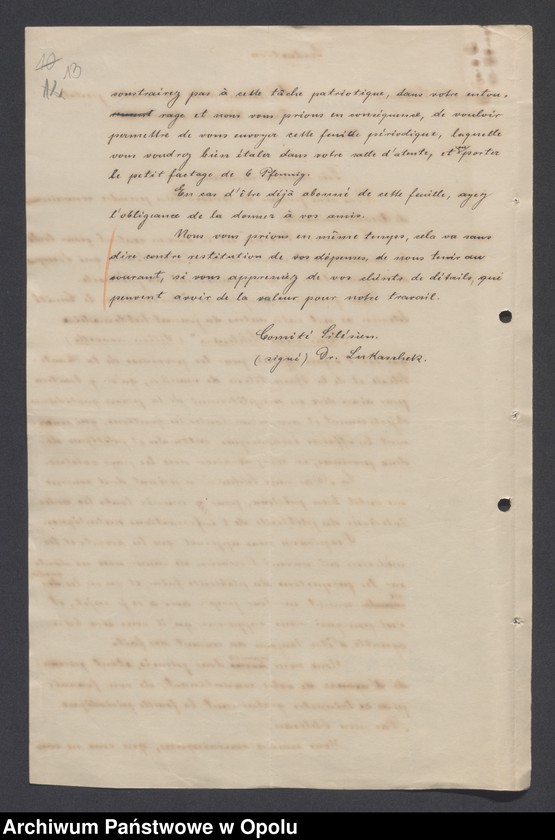 13
12
soustrairez pas à cette tâche patriotique, dans votre entou-
rage et nous vous prions en conséquence, de vouloir
permettre de vous envoyer cette feuille périodique, laquelle
vous voudrez bien étaler dans votre salle d'attente, et porter
le petit factage de 6 Pfennig.
En cas d'être déjà abonné de cette feuille, ayez
l'obligeance de la donner à vos amis.
Nous vous prions en même temps, cela va sans
dire contre restitution de vos dépenses, de nous tenir au
courant, si vous apprenez de vos clients de détails, qui
peuvent avoir de la valeur pour notre travail.
Comité Silésien.
(signé) Dr. Lukaschek.
Archiwum Państwowe w Opolu